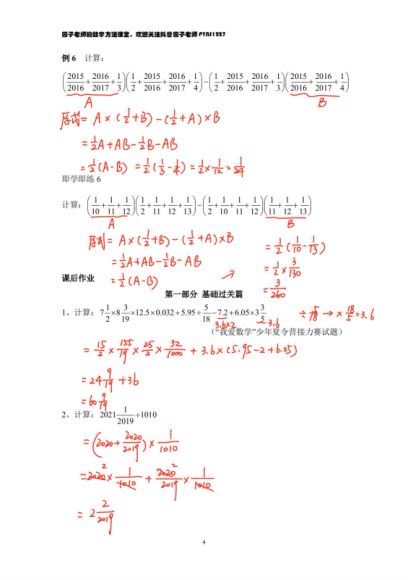 园子老师的数学方法课堂、欢迎关注抖音园子老师 PYRS1227
例 6 计算:
(2015/2016+2016/2017+1/3)(1/2+2015/2016+2016/2017+1/4)-(1/2+2015/2016+2016/2017+1/3)(2015/2016+2016/2017+1/4)
A B
原式= A×(1/2+B)-(1/2+A)×B
=1/2A+AB-1/2B-AB
=1/2(A-B) =1/2(1/3-1/4)=1/2×1/12=1/24
即学即练 6
计算: (1/10+1/11+1/12)(1/2+1/11+1/12+1/13)-(1/2+1/10+1/11+1/12)(1/11+1/12+1/13)
A B
原式= A×(1/2+B)-(1/2+A)×B =1/2(1/10-1/13)
=1/2A+AB-1/2B-AB =1/2×3/130
=1/2(A-B) =3/260
课后作业
第一部分 基础过关篇
1、计算: 7 1/2×8 3/19×12.5×0.032+5.95÷5/18-7.2+6.05×3 3/5 ÷5/18→×18/5=3.6
3.6×2 3.6
(“我爱数学”少年夏令营接力赛试题)
=15/2×155/19×25/2×32/1000+3.6×(5.95-2+6.05)
=24 9/19+36
=60 9/19
2、计算: 2021 1/2019÷1010
=(2020+2020/2019)×1/1010
=2020×1/1010+2020/2019×1/1010
=2 2/2019
4